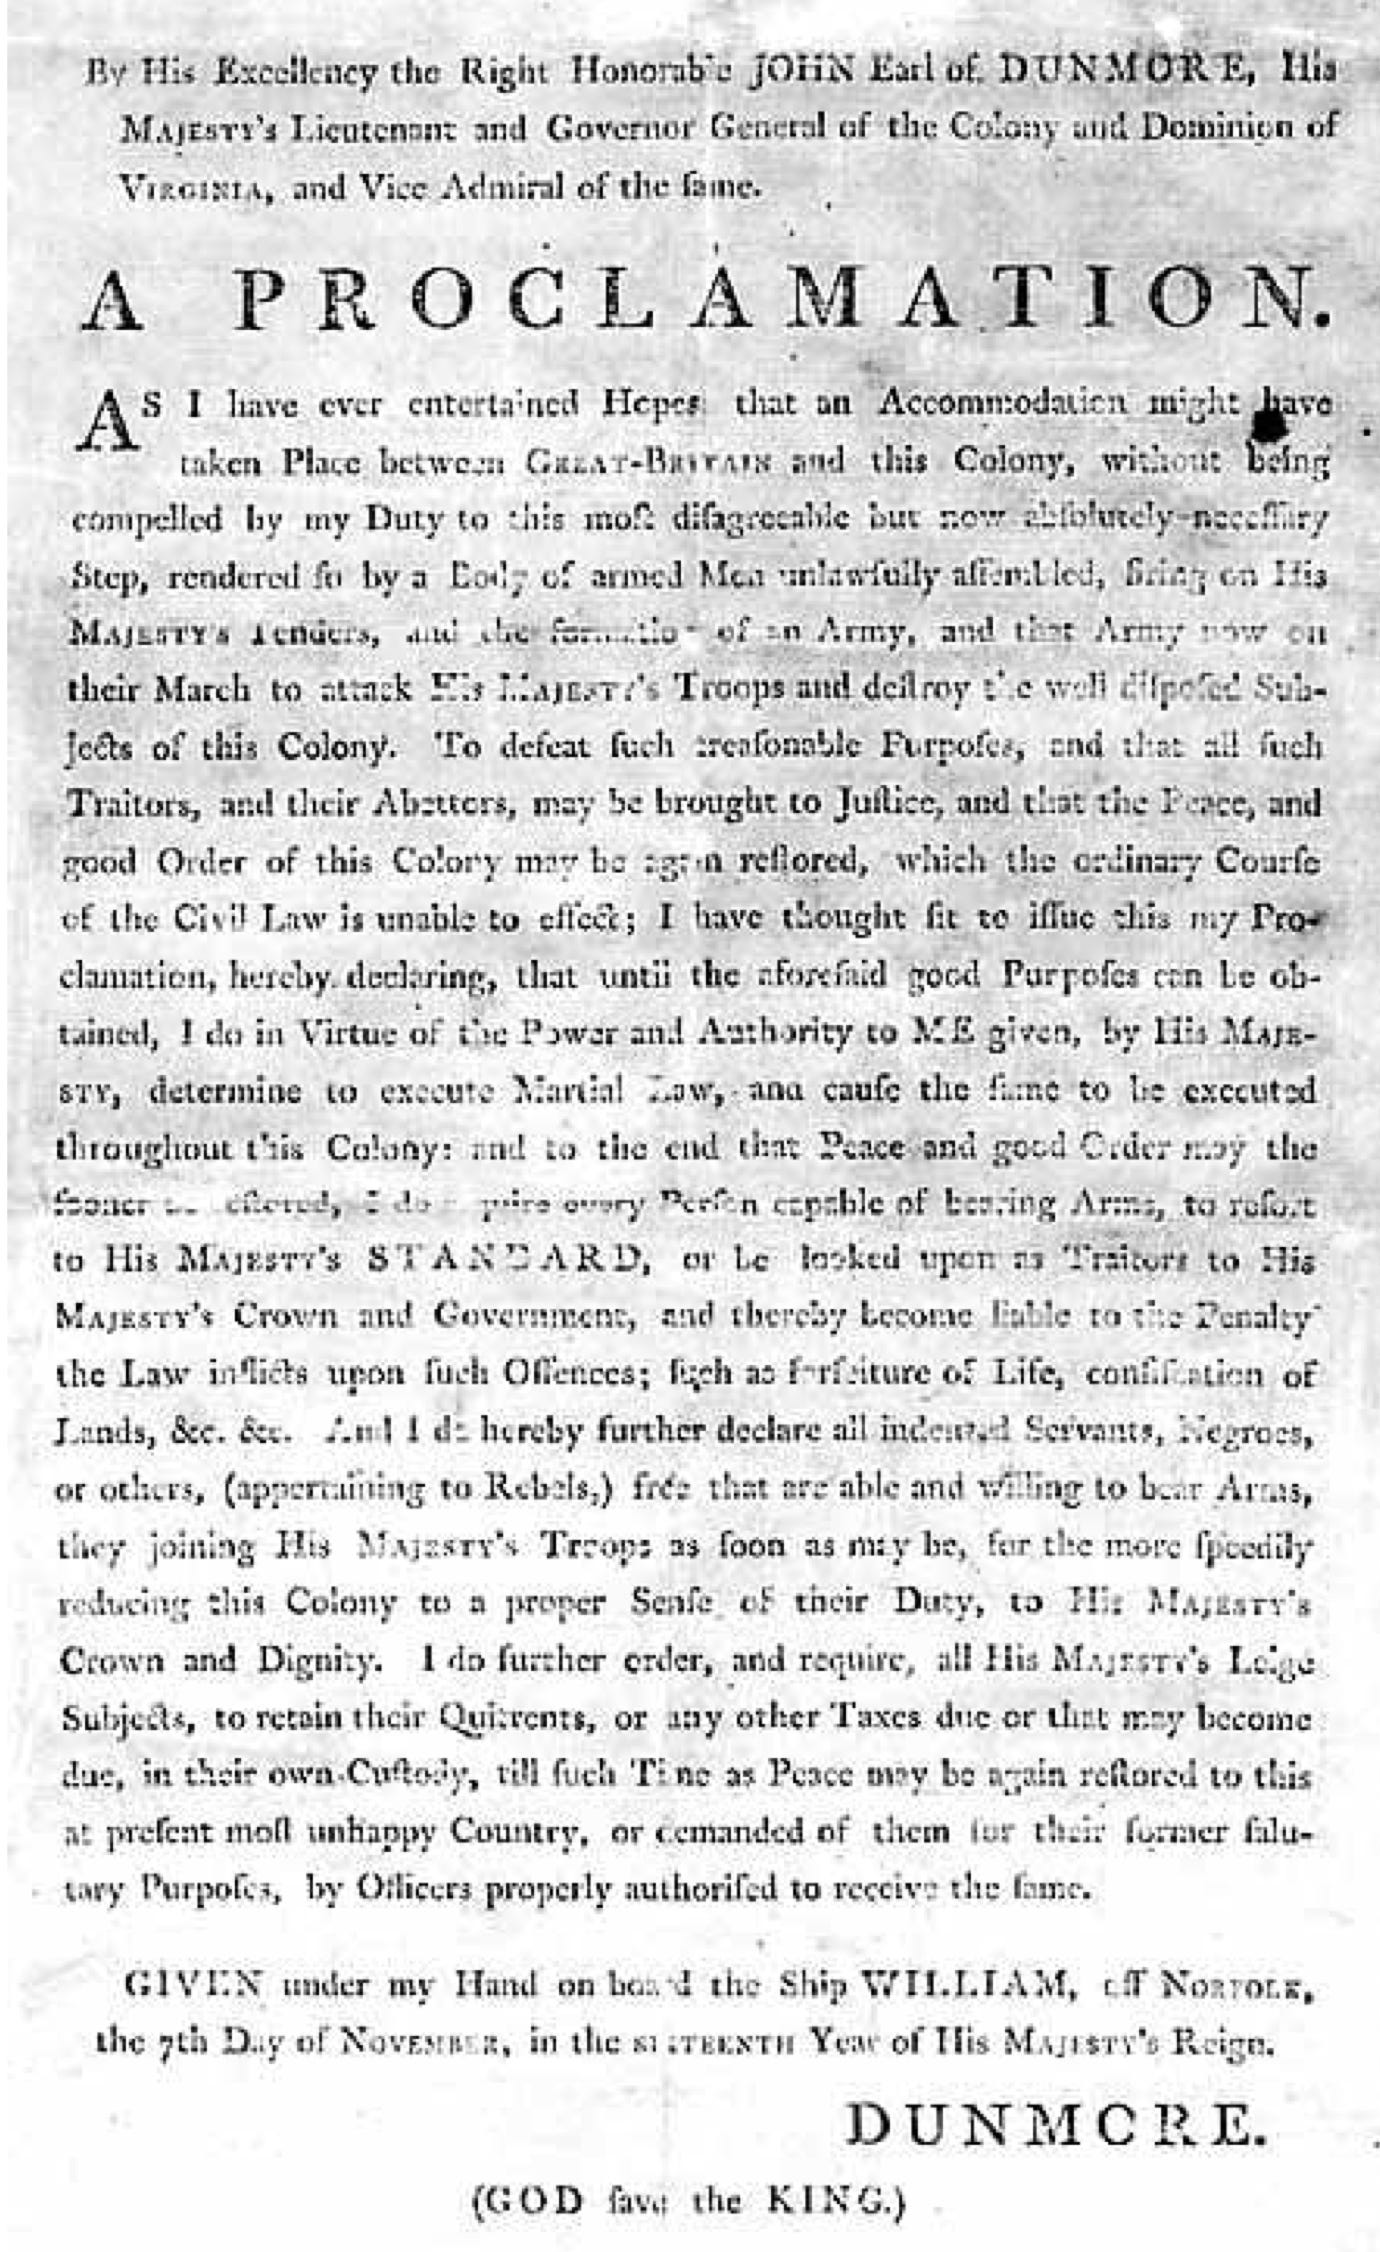 By His Excellency the Right Honorable JOHN Earl of DUNMORE, His
MAJESTY's Lieutenant and Governor General of the Colony and Dominion of
VIRGINIA, and Vice Admiral of the ſame.
A PROCLAMATION.
AS I have ever entertained Hopes that an Accommodation might have
taken Place between GREAT-BRITAIN and this Colony, without being
compelled by my Duty to this moſt diſagreeable but now abſolutely neceſſary
Step, rendered ſo by a Body of armed Men unlawfully aſſembled, firing on His
MAJESTY's Tenders, and the formation of an Army, and that Army now on
their March to attack His MAJESTY's Troops and deſtroy the well diſpoſed Sub-
jects of this Colony. To defeat ſuch treaſonable Purpoſes, and that all ſuch
Traitors, and their Abettors, may be brought to Juſtice, and that the Peace, and
good Order of this Colony may be again reſtored, which the ordinary Courſe
of the Civil Law is unable to effect; I have thought fit to iſſue this my Pro-
clamation, hereby declaring, that until the aforeſaid good Purpoſes can be ob-
tained, I do in Virtue of the Power and Authority to ME given, by His MAJE-
STY, determine to execute Martial Law, and cauſe the ſame to be executed
throughout this Colony: and to the end that Peace and good Order may the
ſooner be reſtored, I do require every Perſon capable of bearing Arms, to reſort
to His MAJESTY's STANDARD, or be looked upon as Traitors to His
MAJESTY's Crown and Government, and thereby become liable to the Penalty
the Law inflicts upon ſuch Offences; ſuch as forfeiture of Life, confiſcation of
Lands, &c. &c. And I do hereby further declare all indented Servants, Negroes,
or others, (appertaining to Rebels,) free that are able and willing to bear Arms,
they joining His MAJESTY's Troops as ſoon as may be, for the more ſpeedily
reducing this Colony to a proper Senſe of their Duty, to His MAJESTY's
Crown and Dignity. I do further order, and require, all His MAJESTY's Leige
Subjects, to retain their Quitrents, or any other Taxes due or that may become
due, in their own Cuſtody, till ſuch Time as Peace may be again reſtored to this
at preſent moſt unhappy Country, or demanded of them for their former ſalu-
tary Purpoſes, by Officers properly authoriſed to receive the ſame.
GIVEN under my Hand on board the Ship WILLIAM, off NORFOLK,
the 7th Day of NOVEMBER, in the SIXTEENTH Year of His MAJESTY's Reign.
DUNMORE.
(GOD ſave the KING.)